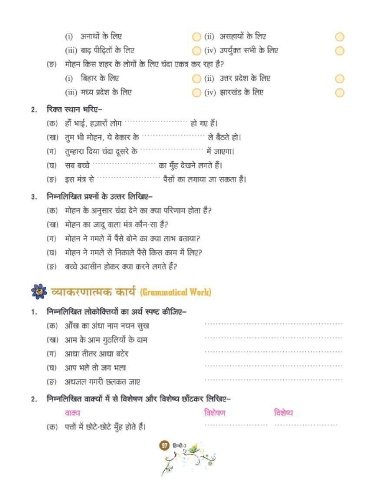 (i) अनाथों के लिए (ii) असहायों के लिए
(iii) बाढ़ पीड़ितों के लिए (iv) उपर्युक्त सभी के लिए
(ङ) मोहन किस शहर के लोगों के लिए चंदा एकत्र कर रहा है?
(i) बिहार के लिए (ii) उत्तर प्रदेश के लिए
(iii) मध्य प्रदेश के लिए (iv) झारखंड के लिए
2. रिक्त स्थान भरिए–
(क) हाँ भाई, हज़ारों लोग ........................ हो गए हैं।
(ख) तुम भी मोहन, ये बेकार के ........................ ले बैठते हो।
(ग) तुम्हारा दिया चंदा दूसरे के ........................ में जाएगा।
(घ) सब बच्चे ........................ का मुँह देखने लगते हैं।
(ङ) इस मंत्र से ........................ पैसों का लगाया जा सकता है।
3. निम्नलिखित प्रश्नों के उत्तर लिखिए–
(क) मोहन के अनुसार चंदा देने का क्या परिणाम होता है?
(ख) मोहन का जादू वाला मंत्र कौन-सा है?
(ग) मोहन ने गमले में पैसे बोने का क्या लाभ बताया?
(घ) मोहन ने गमले से निकाले पैसे किस काम में लिए?
(ङ) बच्चे उदासीन होकर क्या करने लगते हैं?
व्याकरणात्मक कार्य (Grammatical Work)
1. निम्नलिखित लोकोक्तियों का अर्थ स्पष्ट कीजिए–
(क) आँख का अंधा नाम नयन सुख
(ख) आम के आम गुठलियों के दाम
(ग) आधा तीतर आधा बटेर
(घ) आप भले तो जग भला
(ङ) अधजल गगरी छलकत जाए
2. निम्नलिखित वाक्यों में से विशेषण और विशेष्य छाँटकर लिखिए–
वाक्य विशेषण विशेष्य
(क) पत्तों में छोटे-छोटे मुँह होते हैं।
हिन्दी-3